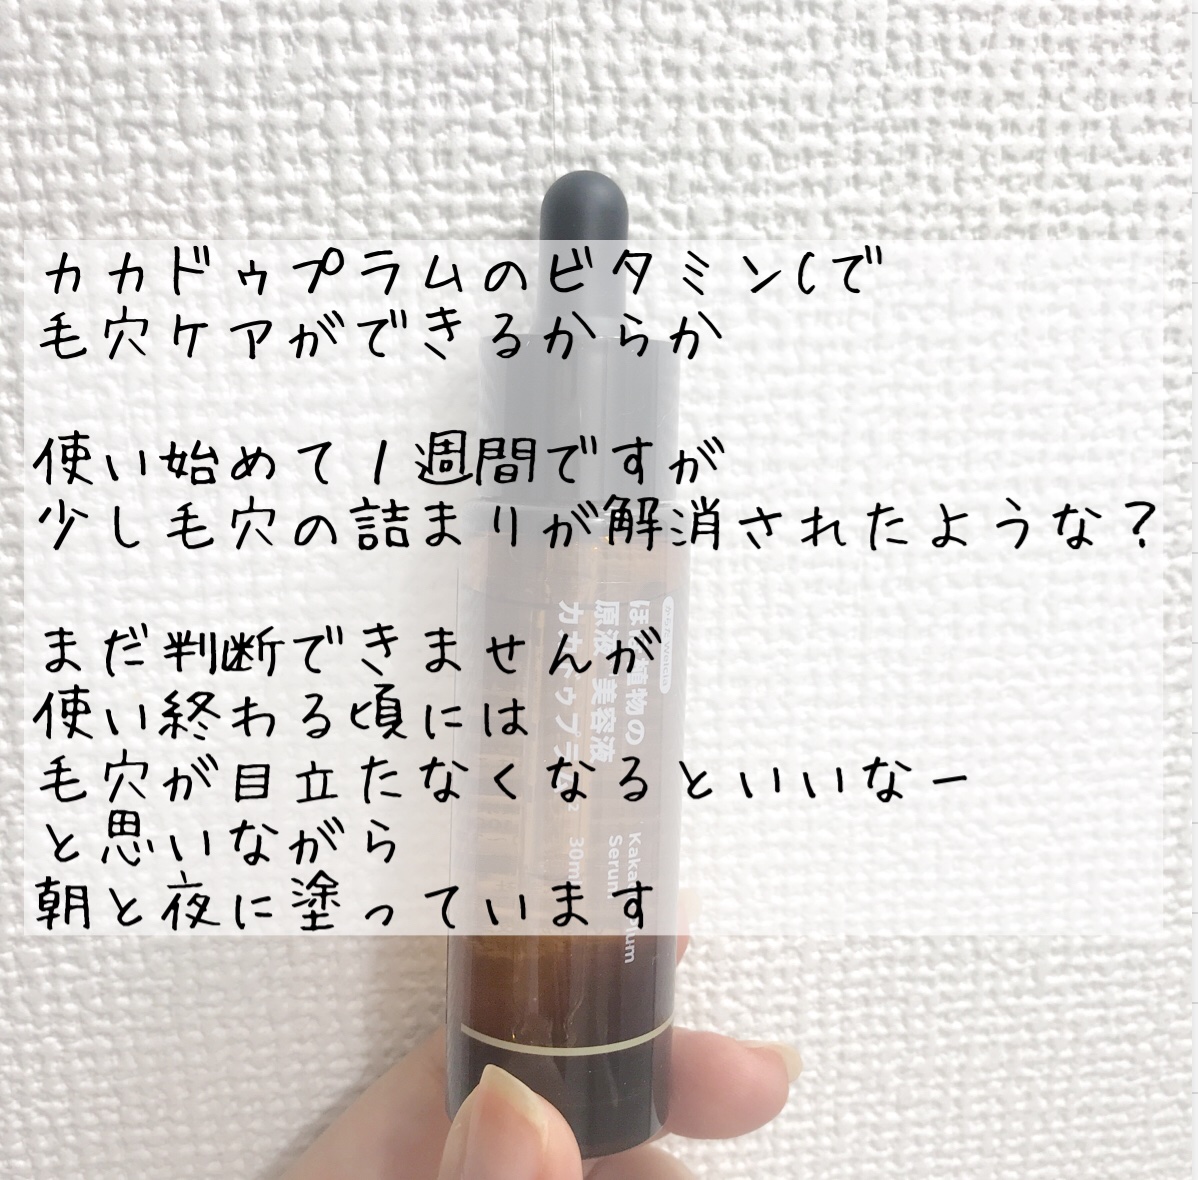 カカドゥプラムのビタミンCで
毛穴ケアができるからか
使い始めて1週間ですが
少し毛穴の詰まりが解消されたような?
まだ判断できませんが
使い終わる頃には
毛穴が目立たなくなるといいなー
と思いながら
朝と夜に塗っています
植物の
原液 美容液
30ml
Serum